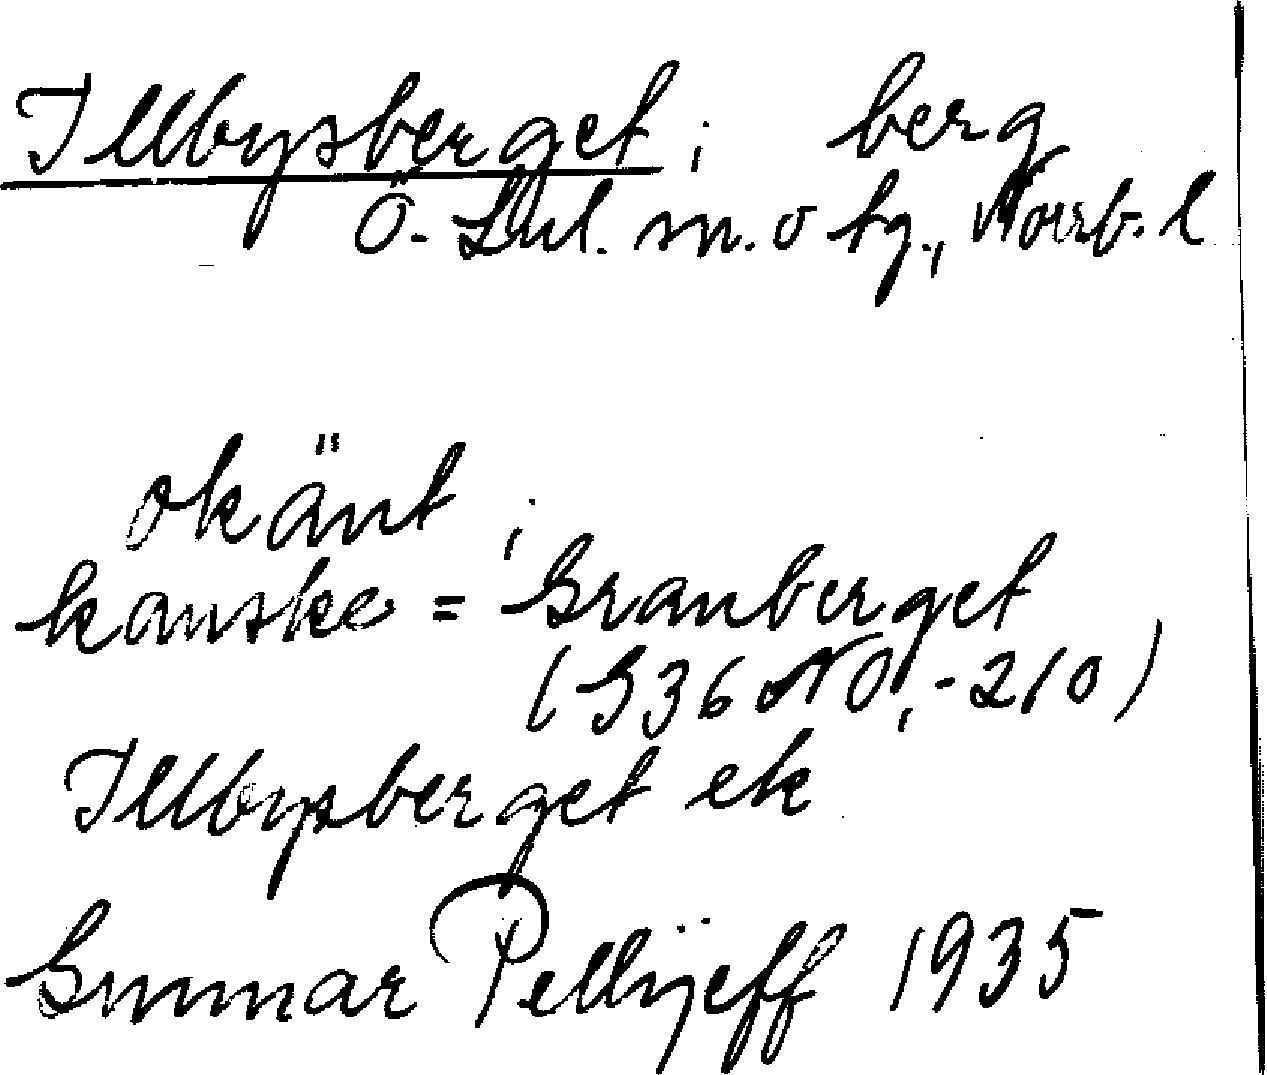 Illbysberget; berg
Ö. Lul. m. o tg., Norrb. l
okänt;
kanske = Granberget
(G36 NO,-210)
Illbysberget ek
Gunnar Pellijeff 1935